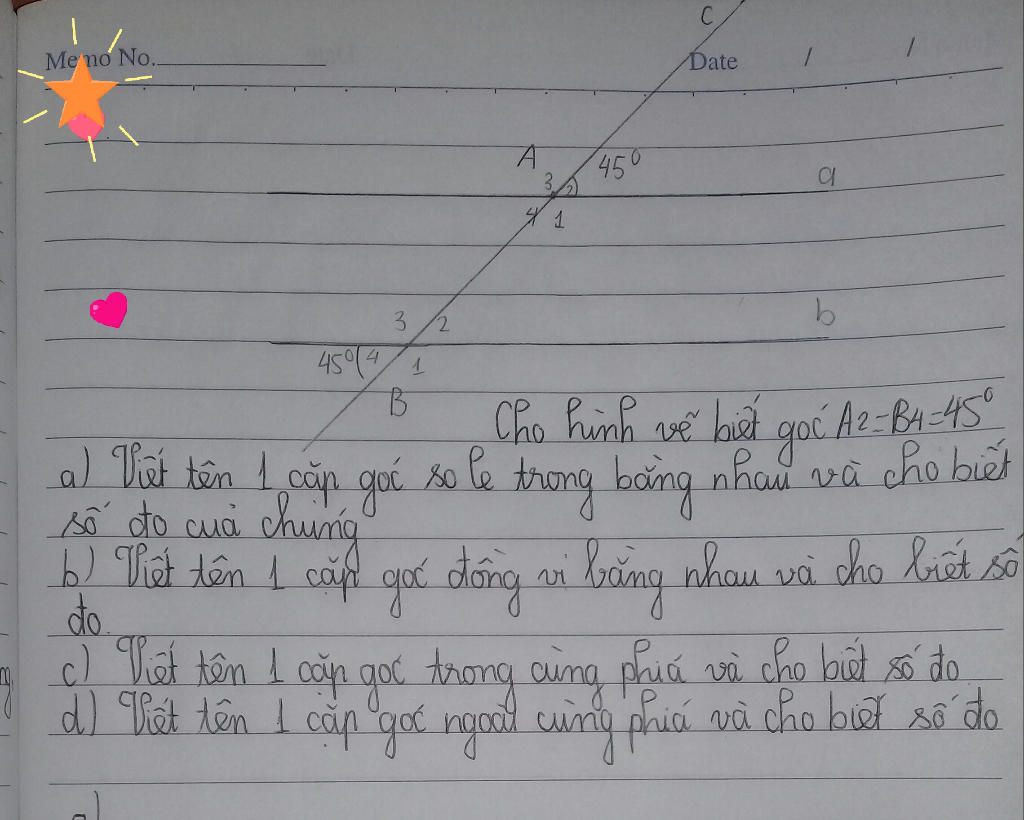 C
Memo No.
Date / /
A
45⁰
3 2
a
4 1
3 2
b
45⁰ 4
1
B
Cho hình vẽ biết goć A2=B4=45⁰
a) Viết tên 1 cặp goć so le trong bằng nhau và cho biết
số đo cuả chúng
b) Viết tên 1 cặp goć đồng vi bằng nhau và cho biết số
đo.
c) Viết tên 1 cặp goć trong cùng phiá và cho biết số đo
d) Viết tên 1 cặp goć ngoài cùng phiá và cho biết số đo